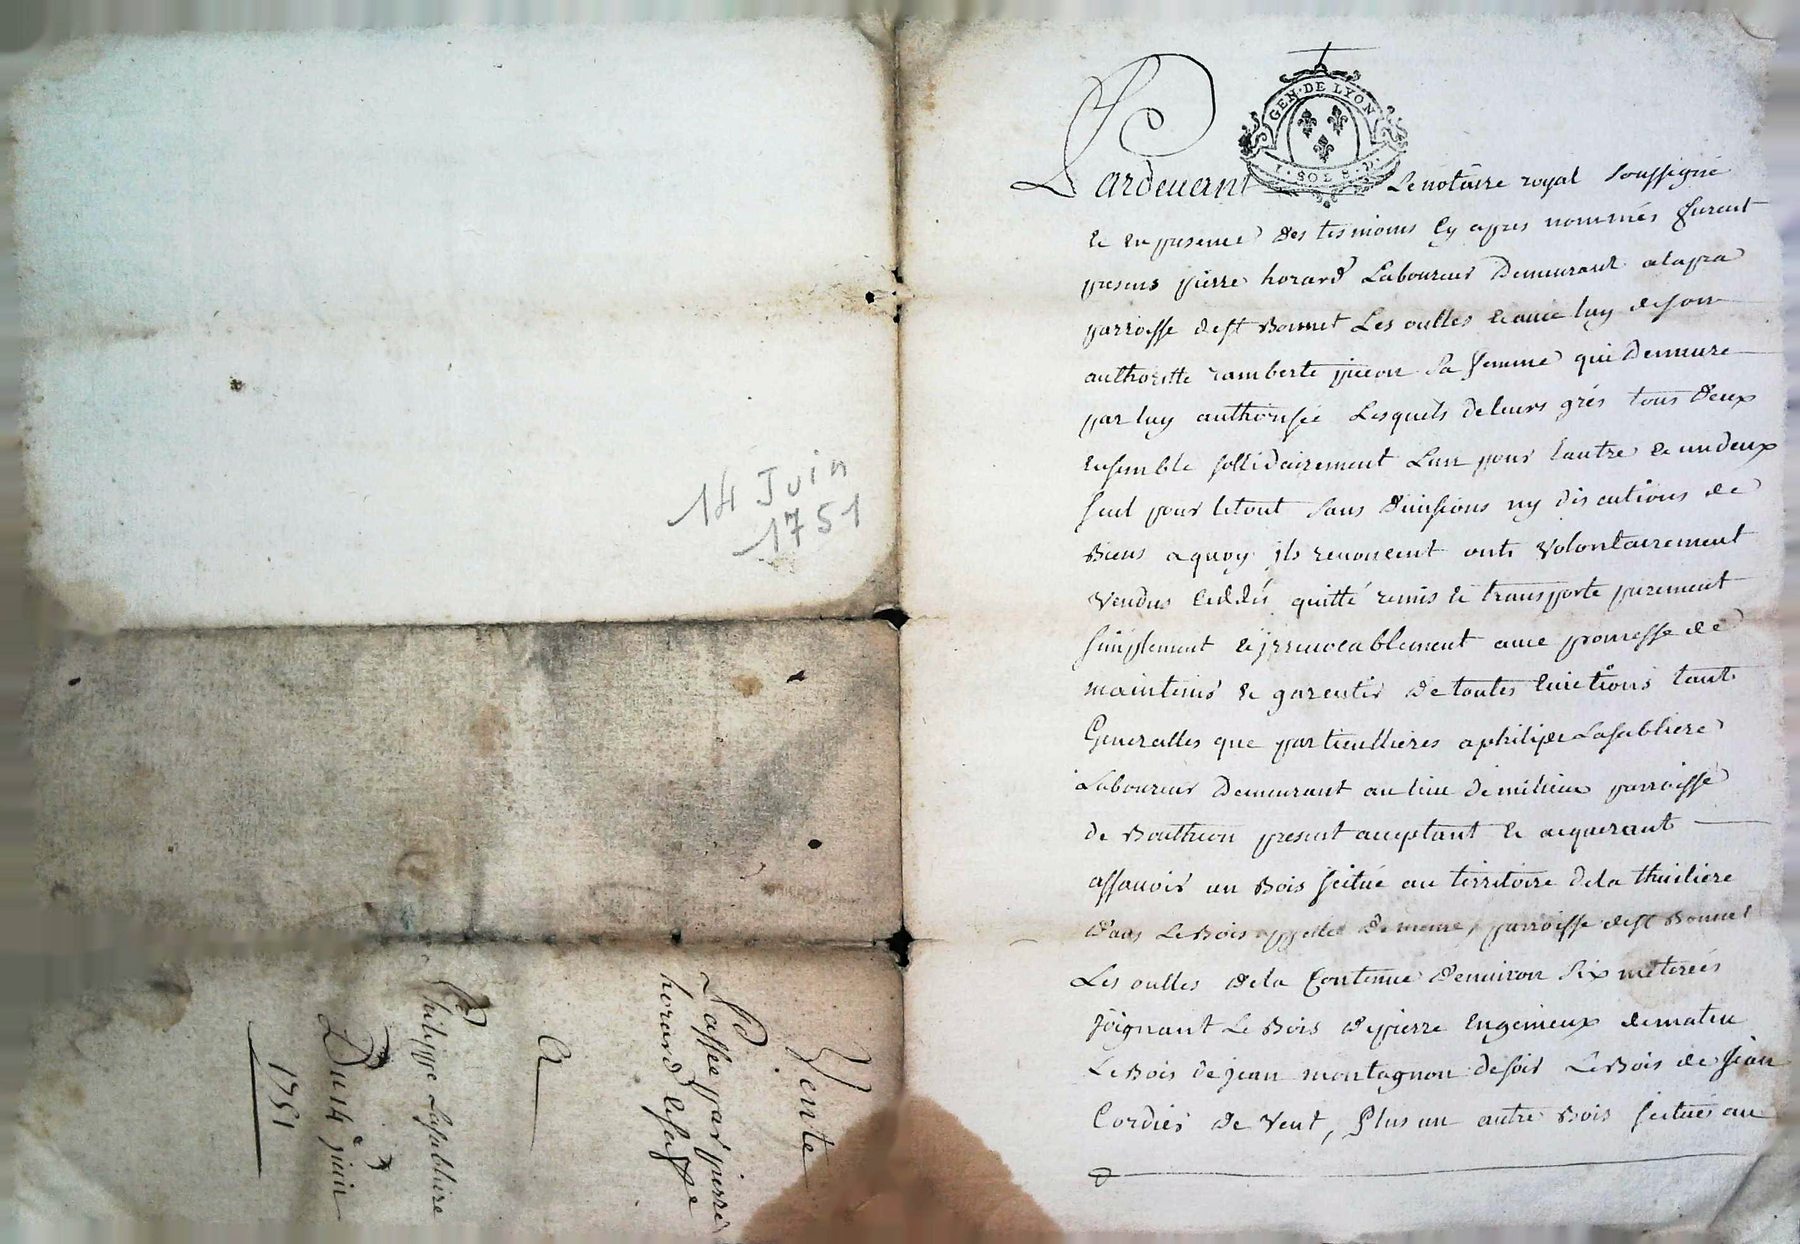 14 Juin
1751
Vente
Passée par pierre
horard & sa ffe
A
Philippe Lasabliere
Du 14e juin
1751
GEN. DE LYON
SOLS
Pardevant Le notaire royal soussigné
& en presence des tesmoins cy apres nommés furent
presens pierre horard Laboureur Demeurant a lapra
parroisse de st Bonnet Les oulles & avec luy de son
authoritte ramberte piceon sa femme qui demeure
par luy authorisée Lesquels de leurs grés tous deux
ensemble sollidairement Lun pour lautre & un deux
seul pour letout sans divisions ny discutions de
Biens a quoy jls renoncent onts volontairement
vendus ceddés quitté remis & transporte purement
simplement & jrrevocablement avec promesse de
maintenir & garentir de toutes evictions tant
Generalles que particullieres a philipe Lasabliere
Laboureur Demeurant au lieu de milieu parroisse
de Boutheon present acceptant & acquerant
assavoir un Bois scitué au territoire de la thuiliere
dans Le Bois appelles de meme, parroisse de st Bonnet
Les oulles de la Contenue denviron six meterées
joignant Le Bois de pierre Engenieux de matin
Le Bois de jean montagnon de soir Le Bois de jean
Cordier de vent, Plus un autre Bois scitués au